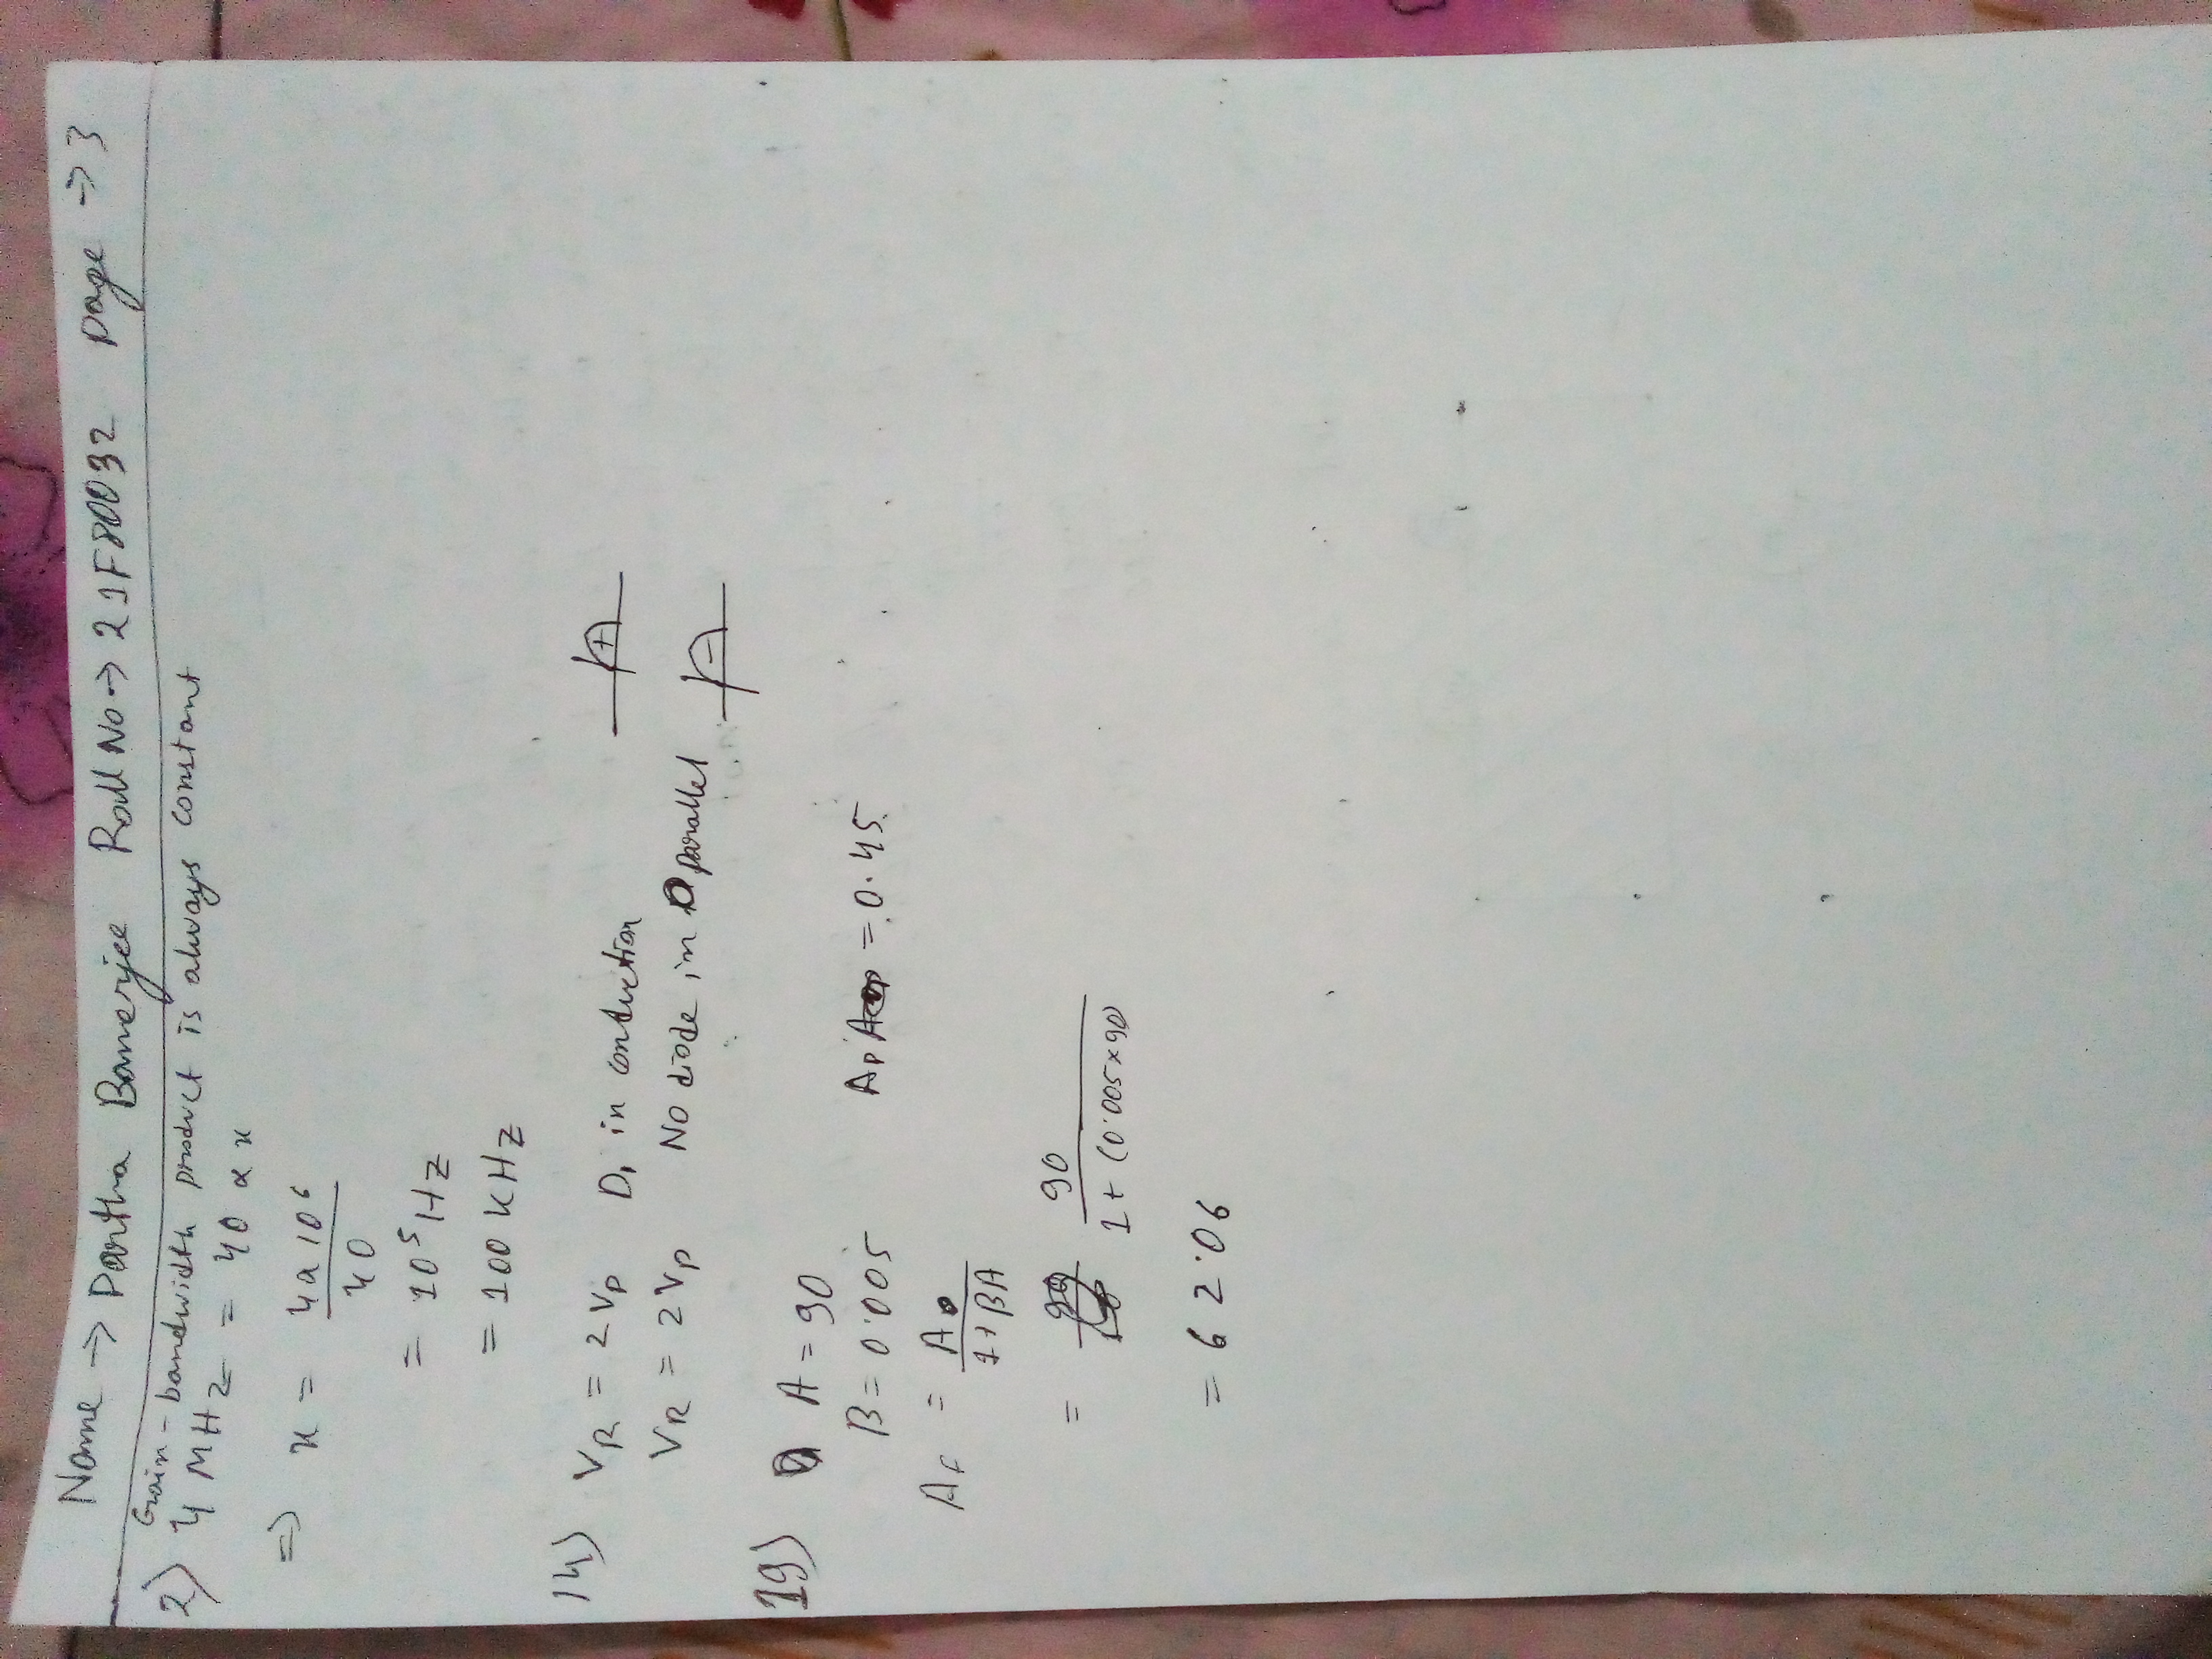 Name → Partha Banerjee Roll No → 21F80032 page → 3
2) Gain-bandwidth product is always constant
4 MHz = 40 × x
⇒ x = 4×10⁶ / 40
= 10⁵ Hz
= 100 kHz
14) VR = 2Vp D₁ in conduction +
VR = 2Vp No diode in parallel −
19) A = 90
B = 0.005 = 0.45
Af = A / 1+βA
= 90 / 1+(0.005×90)
= 62.06